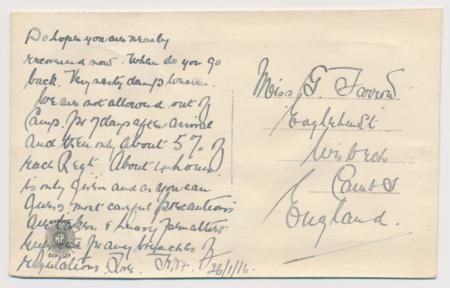 Do hope you are nearly
recovered now. When do you go
back. Very nasty damp weather.
We are not allowed out of
Camp for 7 days after arrival
and then only about 5% of
each Regt. About 4 hours
is only given and as you can
guess most careful precautions
are taken & heavy penalties
for any breaches of
regulations. 26/1/16.
Miss G. Farrow
"Eaglehurst"
Wisbech
Cambs
England.